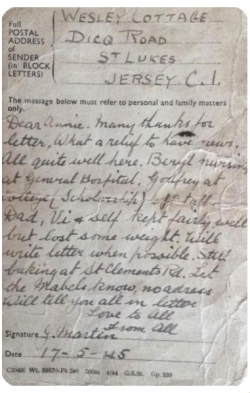 Full
POSTAL
ADDRESS
of
SENDER
(in BLOCK
LETTERS)
WESLEY COTTAGE
DICQ ROAD
ST LUKES
JERSEY C.I.
The message below must refer to personal and family matters
only.
Dear Annie. Many thanks for
letter. What a relief to have news.
All quite well here. Beryl nursing
at General Hospital. Godfrey at
College (Scholarship)
Dad, Vi & self kept fairly well
but lost some weight. Will
write letter when possible. Still
baking at St Clements Rd. Let
the Mabels know, no adress
Will tell you all in letter
Love to all
from All
Signature G. Martin
Date 17-5-45